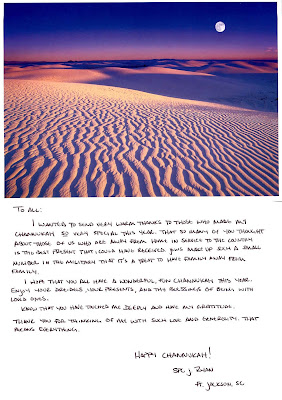 To All:
I wanted to send very warm thanks to those who made my
Channukah so very special this year. That so many of you thought
about those of us who are away from home in service to the country
is the best present that I could have received. Jews make up such a small
minority in the military that it's a treat to have family away from
family.
I hope that you all have a wonderful, fun Channukah this year.
Enjoy your dreidels, your presents, and the blessings of being with
loved ones.
Know that you have touched me deeply and have my gratitude.
Thank you for thinking of me with such love and generosity. That
means everything.
Happy Channukah!
SPC J
Ft. Jackson, SC